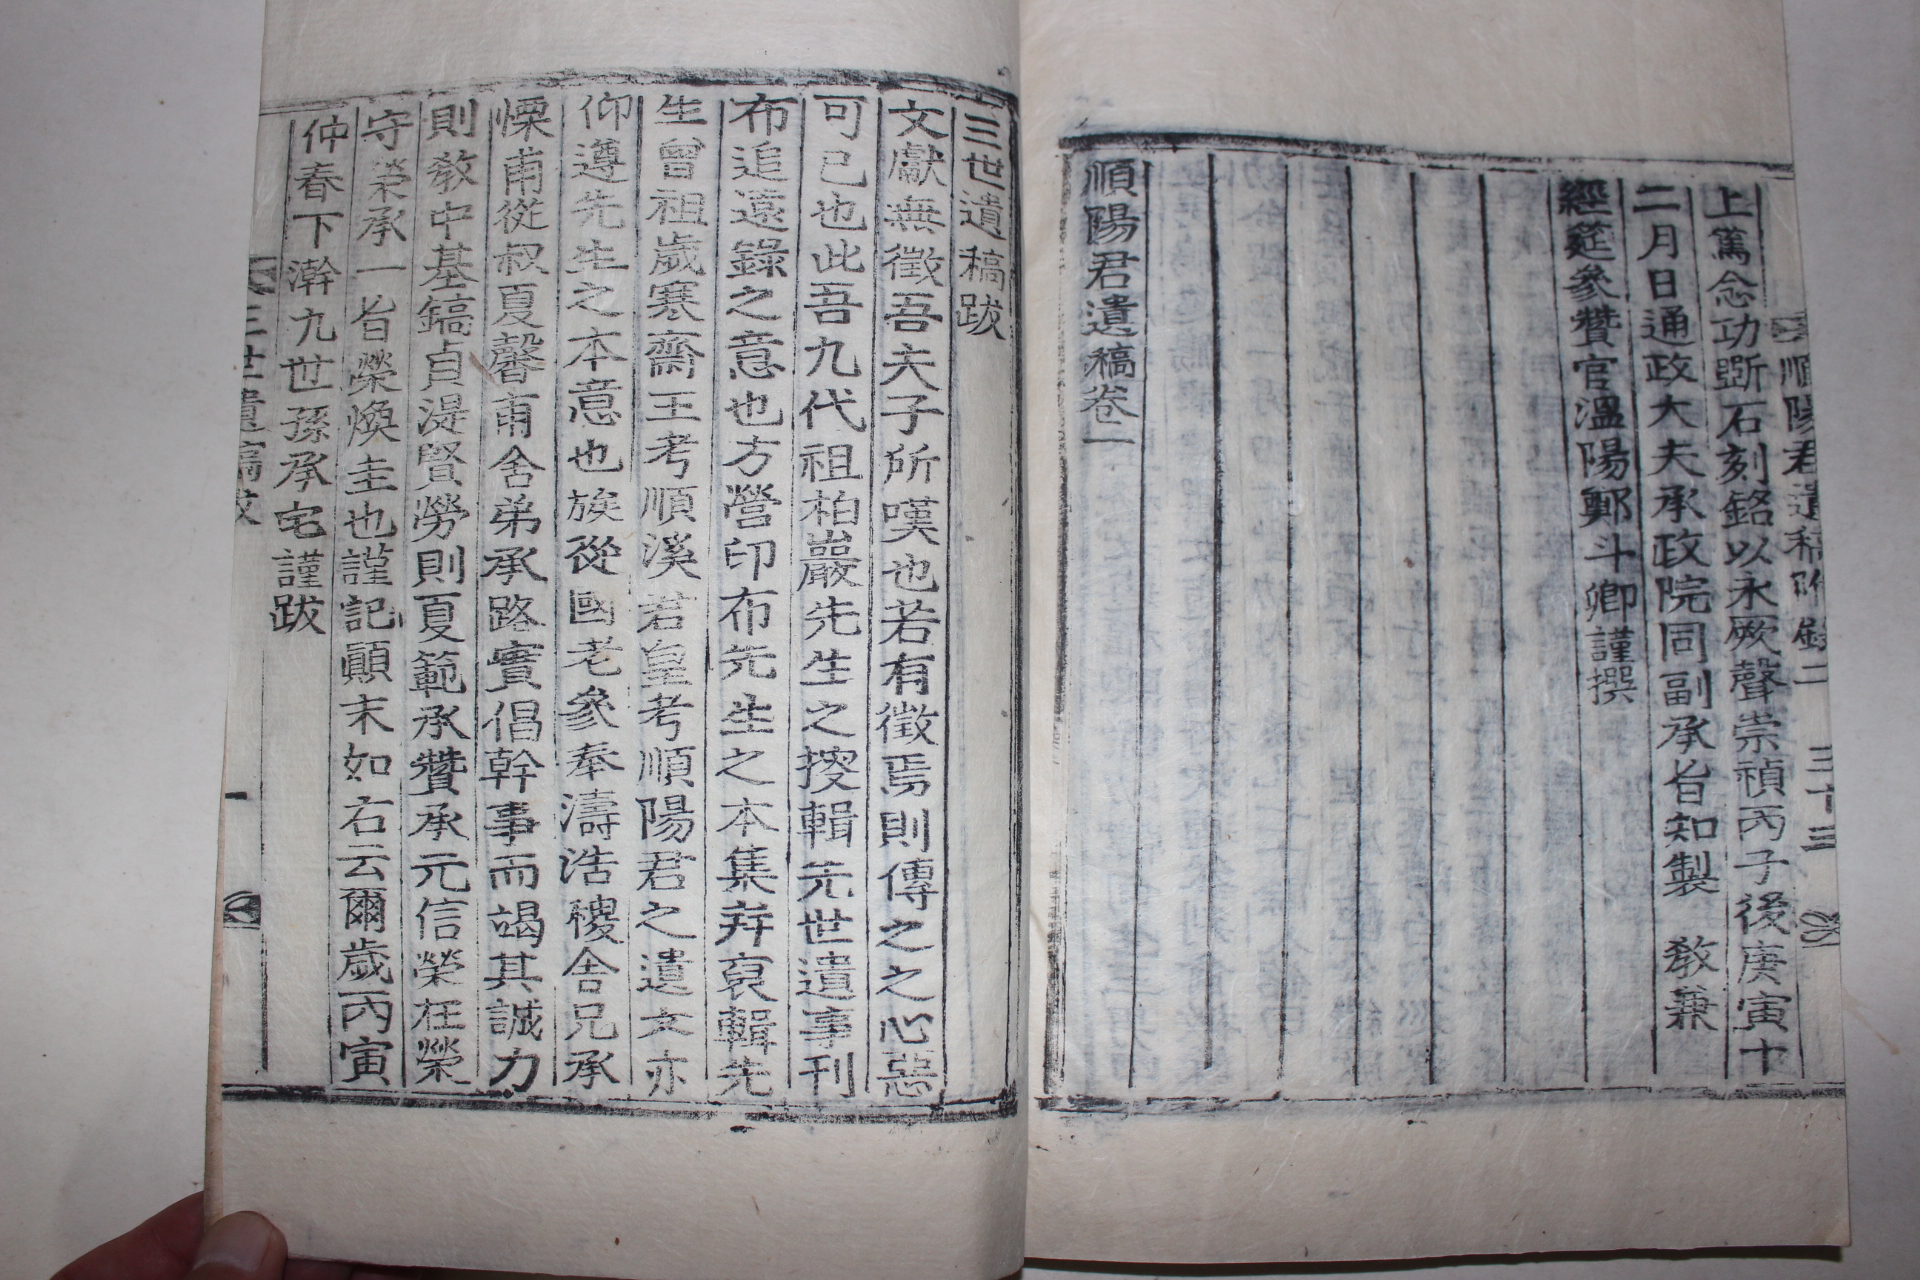 順陽君遺稿附錄二 三十三
上篤念功斲石刻銘以永厥聲崇禎丙子後庚寅十
二月日通政大夫承政院同副承旨知製 敎兼
經筵參贊官溫陽鄭斗卿謹撰
順陽君遺稿卷二
三世遺稿跋
文獻無徵吾夫子所嘆也若有徵焉則傳之之心惡
可已也此吾九代祖柏巖先生之捜輯先世遺事刊
布追遠錄之意也方營印布先生之本集并裒輯先
生曾祖歲寒齋王考順溪君皇考順陽君之遺文亦
仰遵先生之本意也族從國老參奉濤浩稷舍兄承
慄甫從叔夏馨甫舍弟承路實倡幹事而竭其誠力
則敎中基鎬貞湜賢勞則夏範承贊承元信榮枉榮
守榮承一旨榮煥圭也謹記顚末如右云爾歲丙寅
仲春下澣九世孫承宅謹跋
三世遺稿跋 一